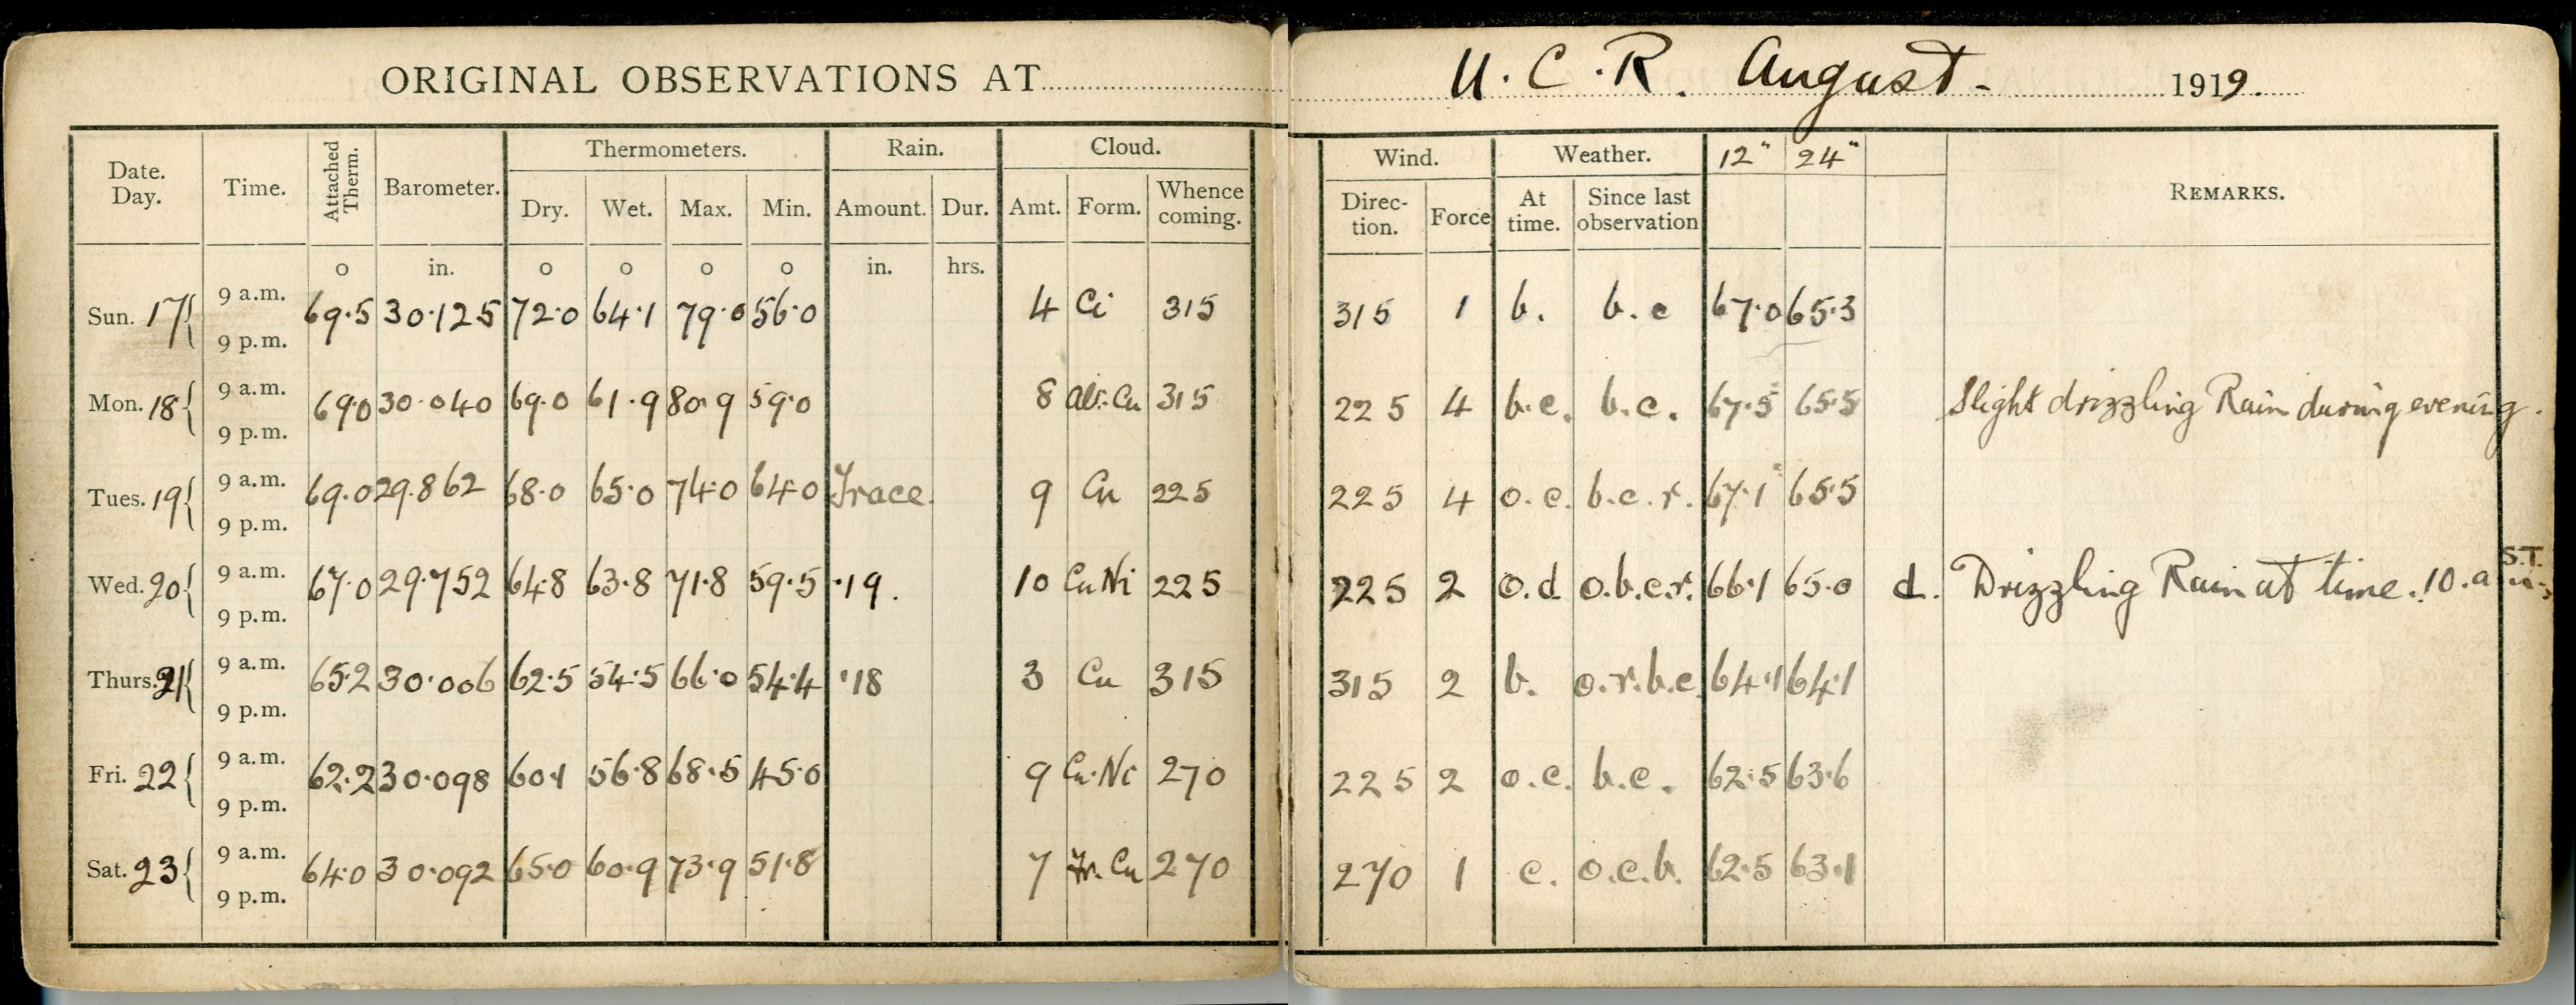 ORIGINAL OBSERVATIONS AT U. C. R. August - 1919.
Date. Day. Time. Attached Therm. Barometer. Thermometers. Rain. Cloud. Wind. Weather. 12" 24" REMARKS.
Dry. Wet. Max. Min. Amount. Dur. Amt. Form. Whence coming. Direc-tion. Force At time. Since last observation
o in. o o o o in. hrs.
Sun. 17 { 9 a.m. 9 p.m. 69.5 30.125 72.0 64.1 79.0 56.0 4 Ci 315 315 1 b. b.c 67.0 65.3
Mon. 18 { 9 a.m. 9 p.m. 69.0 30.040 69.0 61.9 80.9 59.0 8 Alt.Cu 315 225 4 b.c. b.c. 67.5 65.5 Slight drizzling Rain during evening.
Tues. 19 { 9 a.m. 9 p.m. 69.0 29.862 68.0 65.0 74.0 64.0 Trace. 9 Cu 225 225 4 o.c. b.c.r. 67.1 65.5
Wed. 20 { 9 a.m. 9 p.m. 67.0 29.752 64.8 63.8 71.8 59.5 .19. 10 CuNi 225 225 2 o.d o.b.c.r. 66.1 65.0 d. Drizzling Rain at time. 10. a.m. S.T.
Thurs. 21 { 9 a.m. 9 p.m. 65.2 30.006 62.5 54.5 66.0 54.4 .18 3 Cu 315 315 2 b. o.r.b.c 64.1 64.1
Fri. 22 { 9 a.m. 9 p.m. 62.2 30.098 60.1 56.8 68.5 45.0 9 Cu.Ni 270 225 2 o.c. b.c. 62.5 63.6
Sat. 23 { 9 a.m. 9 p.m. 64.0 30.092 65.0 60.9 73.9 51.8 7 Fr.Cu 270 270 1 c. o.c.b. 62.5 63.1